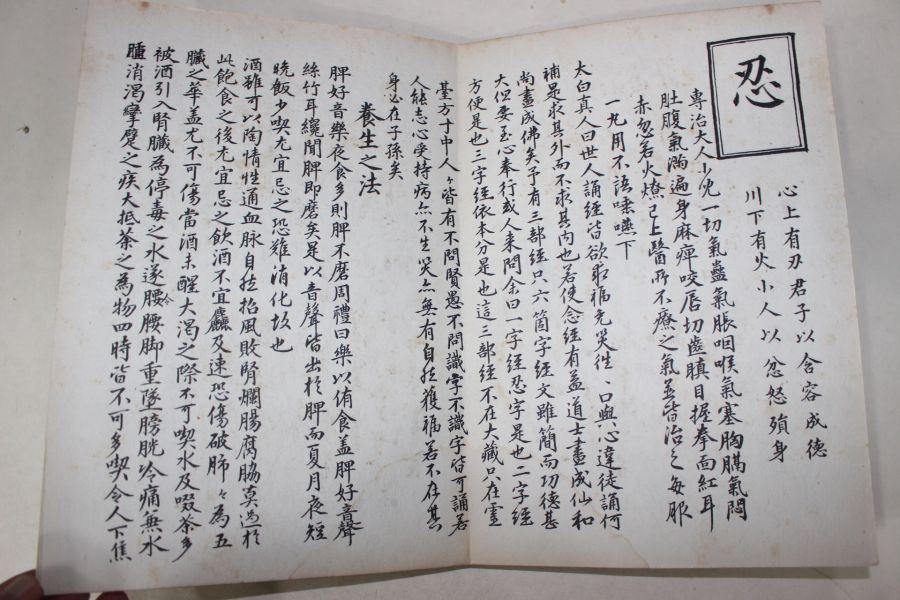 忍
心上有刃君子以含容成德
川下有火小人以忿怒殞身
專治大人小兒一切氣蠱氣脹咽喉氣塞胸膈氣悶
肚腹氣滿遍身麻痺咬唇切齒瞋目握拳面紅耳
赤忽若火燎已上醫所不療之氣並皆治之每服
一丸用不語唾嚥下
太白真人曰世人誦經皆欲取福免災往〻口與心違徒誦何
補是求其外而不求其内也若使念經有益道士盡成仙和
尚盡成佛矣予有三部經只六箇字經文雖簡而功德甚
大但要至心奉行或人来問余曰一字經忍字是也二字經
方便是也三字經依本分是也這三部經不在大藏只在靈
臺方寸中人〻皆有不問賢愚不問識字不識字皆可誦若
人能志心受持病亦不生災亦無有自然獲福若不在其
身必在子孫矣
養生之法
脾好音樂夜食多則脾不磨周禮曰樂以侑食盖脾好音聲
絲竹耳纔聞脾即磨矣是以音聲皆出於脾而夏月夜短
晩飯少喫尤宜忌之恐難消化故也
酒雖可以陶情性通血脉自然招風敗腎爛腸腐脇莫過於
此飽食之後尤宜忌之飲酒不宜麤及速恐傷破肺〻為五
臟之華盖尤不可傷當酒未醒大渴之際不可喫水及啜茶多
被酒引入腎臟為停毒之水遂腰令腰脚重墜膀胱冷痛無水
腫消渴攣躄之疾大抵茶之為物四時皆不可多喫令人下焦